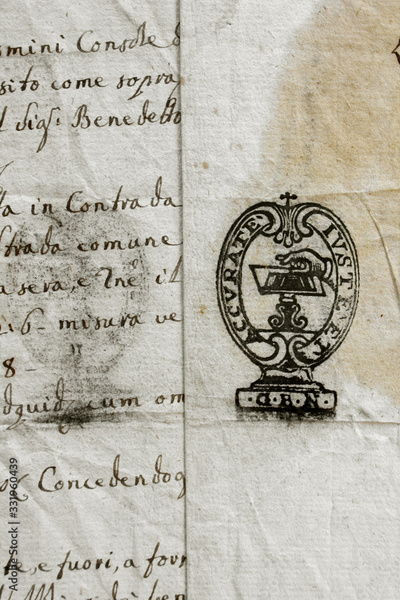 mini Console d
sito come sopra
l Sig.r Benedetto
ta in Contrada
strada comune
a sera, e Tnẽ il
2:6- misura ve
8-
dquid cum om
Concedendog
e, e fuori, a forn
IVSTE ET ACCVRATE
G.B.N.
Adobe Stock | #331960439